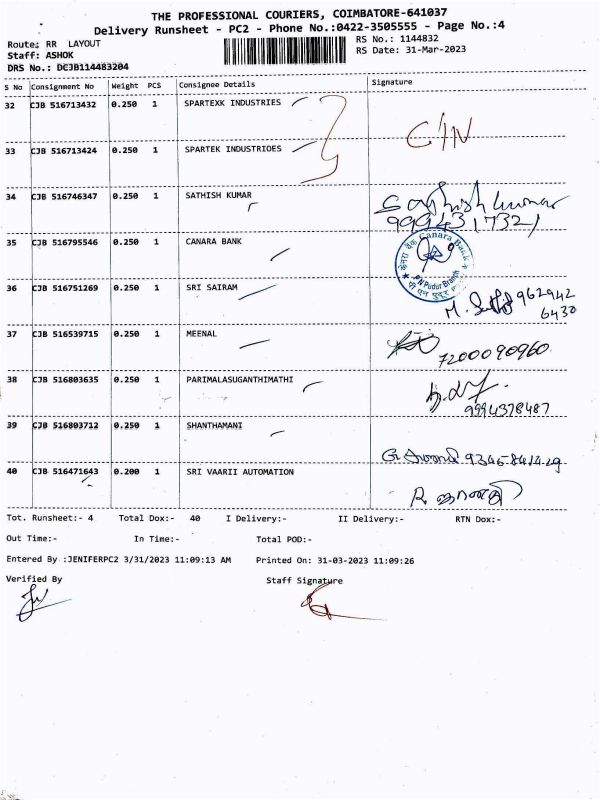 THE PROFESSIONAL COURIERS, COIMBATORE-641037
Delivery Runsheet - PC2 - Phone No.:0422-3505555 - Page No.:4
Route: RR LAYOUT
RS No.: 1144832
Staff: ASHOK
RS Date: 31-Mar-2023
DRS No.: DCJB114483204
S No Consignment No Weight PCS Consignee Details Signature
32 CJB 516713432 0.250 1 SPARTEXK INDUSTRIES
33 CJB 516713424 0.250 1 SPARTEK INDUSTRIOES
34 CJB 516746347 0.250 1 SATHISH KUMAR Sathish kumar
9994317321
35 CJB 516795546 0.250 1 CANARA BANK
केनरा बैंक Canara Bank
P N Pudur Branch
36 CJB 516751269 0.250 1 SRI SAIRAM 962942
6430
37 CJB 516539715 0.250 1 MEENAL
7200090960
38 CJB 516803635 0.250 1 PARIMALASUGANTHIMATHI
9994378487
39 CJB 516803712 0.250 1 SHANTHAMANI
40 CJB 516471643 0.200 1 SRI VAARII AUTOMATION
Tot. Runsheet:- 4 Total Dox:- 40 I Delivery:- II Delivery:- RTN Dox:-
Out Time:- In Time:- Total POD:-
Entered By :JENIFERPC2 3/31/2023 11:09:13 AM Printed On: 31-03-2023 11:09:26
Verified By Staff Signature